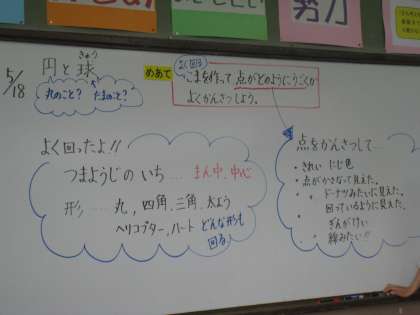 努力
5/18
円と球
きゅう
丸のこと? たまのこと?
めあて
よく回る
こまを作って点がどのようにうごくか
よくかんさつしよう。
よく回ったよ!!
つまようじの いち … まん中、中心
形 … 丸、四角、三角、太よう
ヘリコプター、ハート どんな形も
回る
点をかんさつして…
・きれい にじ色
・点がかさなって見えた。
・〃 ドーナツみたいに見えた。
・回っているように見えた。
・ぎんがけい
・線みたい!!